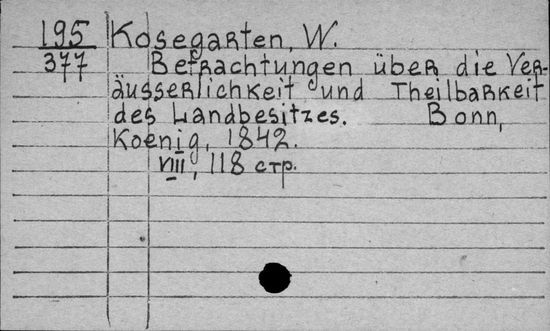 195 Kosegarten, W.
377 Betrachtungen über die Ver-
äusserlichkeit und Theilbarkeit
des Landbesitzes. Bonn,
Koenig, 1842.
VIII, 118 стр.